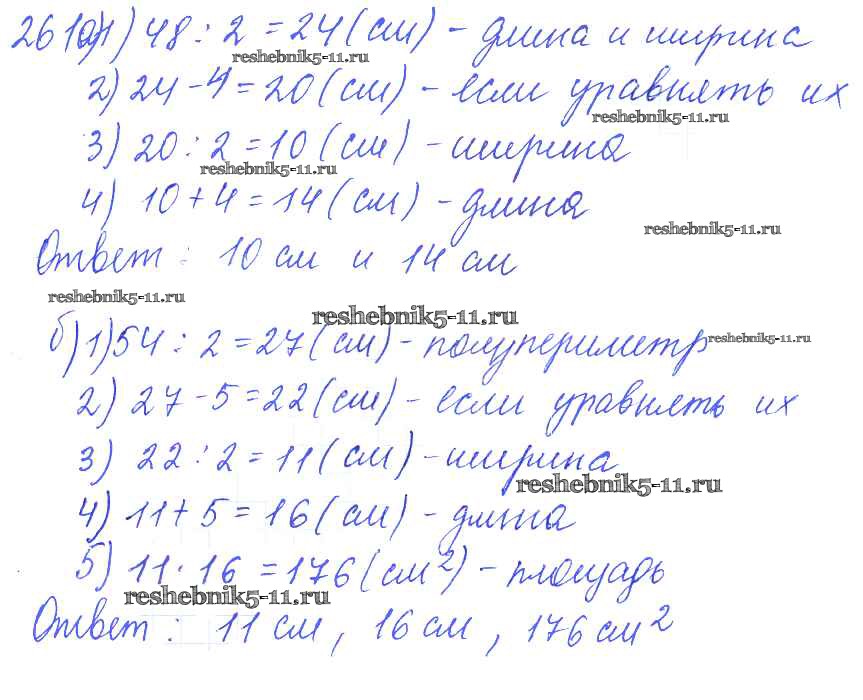 261 а) 1) 48 : 2 = 24 (см) - длина и ширина
reshebnik5-11.ru
2) 24 - 4 = 20 (см) - если уравнять их
reshebnik5-11.ru
3) 20 : 2 = 10 (см) - ширина
reshebnik5-11.ru
4) 10 + 4 = 14 (см) - длина
reshebnik5-11.ru
Ответ : 10 см и 14 см
reshebnik5-11.ru
reshebnik5-11.ru
б) 1) 54 : 2 = 27 (см) - полупериметр
reshebnik5-11.ru
2) 27 - 5 = 22 (см) - если уравнять их
3) 22 : 2 = 11 (см) - ширина
reshebnik5-11.ru
4) 11 + 5 = 16 (см) - длина
5) 11 · 16 = 176 (см²) - площадь
reshebnik5-11.ru
Ответ : 11 см , 16 см , 176 см²